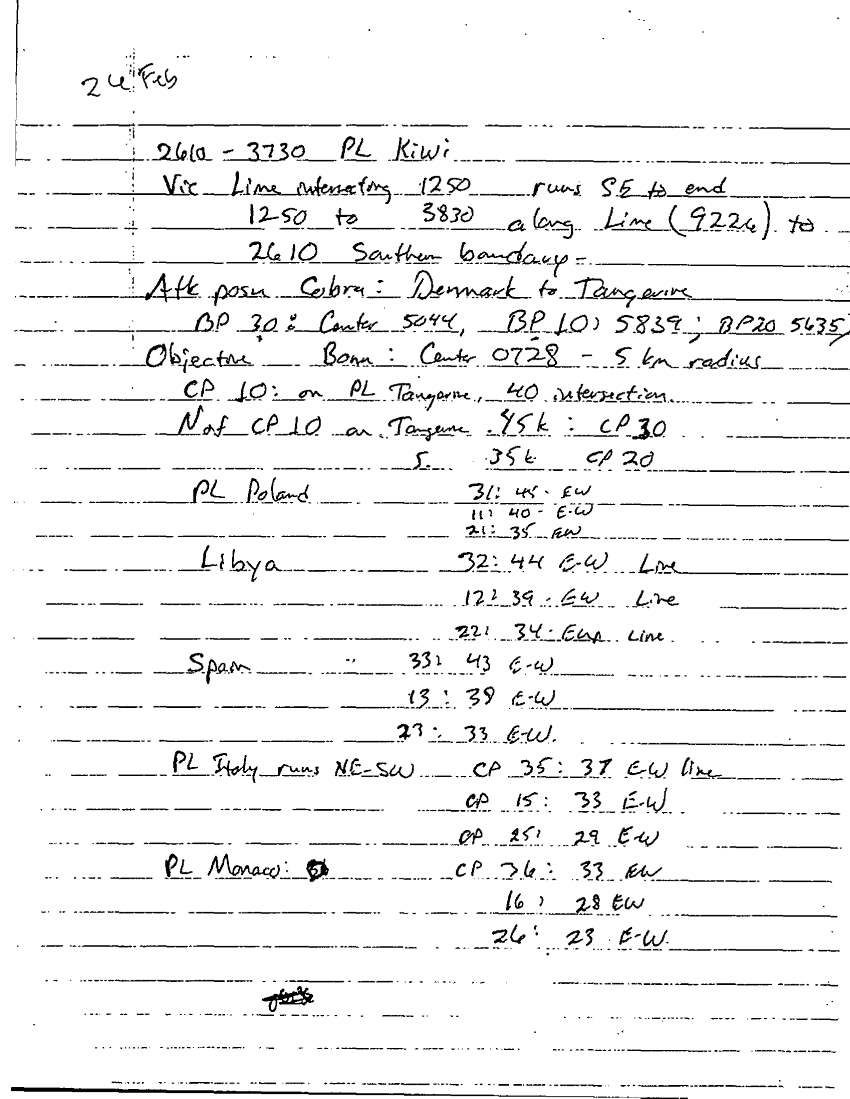 26 Feb
2610 - 3730 PL Kiwi
Vic Lime intersecting 1250 runs SE to end
1250 to 3830 along Lime (9226) to
2610 Southern boundary -
Atk posn Cobra: Denmark to Tangerine
BP 30: Center 5044, BP 10: 5839; BP20 5635,
Objective Bonn: Center 0728 - 5 km radius
CP 10: on PL Tangerine, 40 intersection.
N of CP 10 on Tangerine 45k: CP 30
S. 35k CP 20
PL Poland 31: 45 - EW
11: 40 - E-W
21: 35 EW
Libya 32: 44 E-W Line
12: 39 - EW Line
22: 34 - Line
Spain 33: 43 E-W
13: 38 E-W
23: 33 E-W.
PL Italy runs NE-SW CP 35: 37 E-W line
CP 15: 33 E-W
CP 25: 29 E-W
PL Monaco: CP 36: 33 EW
16: 28 EW
26: 23 E-W.